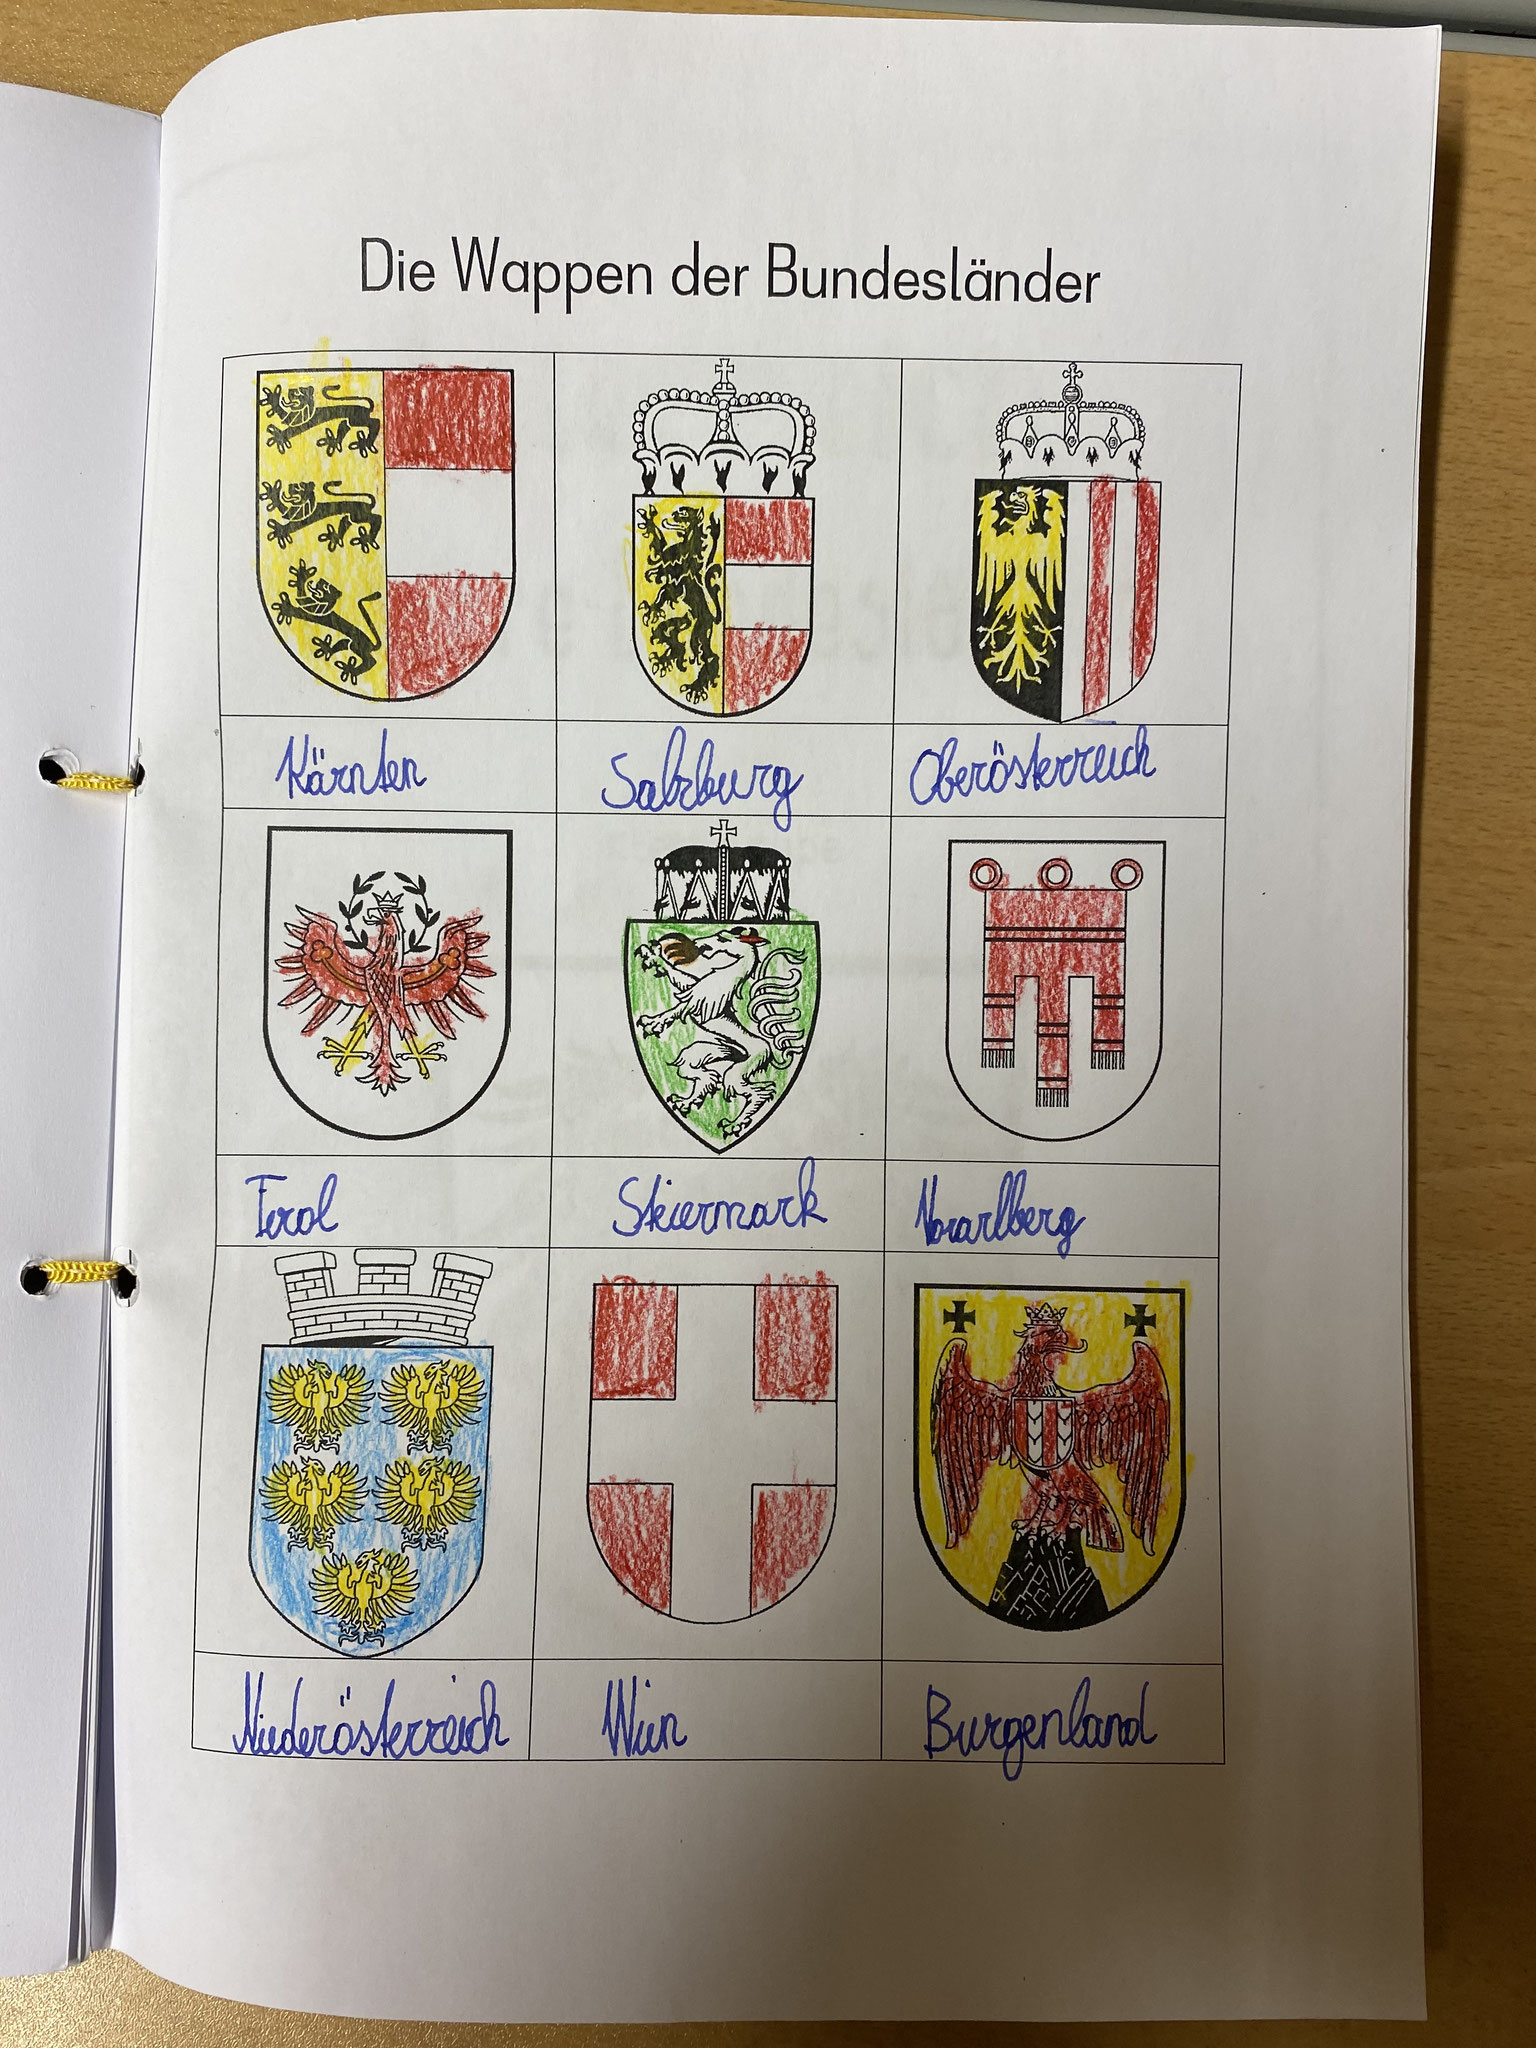 Die Wappen der Bundesländer
Kärnten
Salzburg
Oberösterreich
Tirol
Steiermark
Vorarlberg
Niederösterreich
Wien
Burgenland